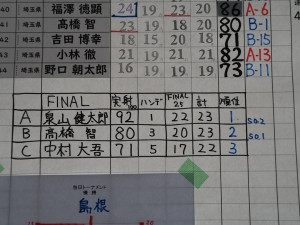 40 埼玉県 福澤 徳顕 24 19 23 20 86 A-6
41 埼玉県 高橋 智 23 19 19 19 80 B-1
42 埼玉県 吉田 博幸 18 15 20 18 71 B-15
43 埼玉県 小林 徹 21 19 21 21 82 A-13
44 埼玉県 野口 朝太郎 16 19 19 19 73 B-11
FINAL 実射 100 ハンデ FINAL 25 計 順位
A 泉山 健太郎 92 1 22 23 1 S.O.2
B 高橋 智 80 3 20 23 2 S.O.1
C 中村 大吾 71 5 17 22 3
優勝
島根